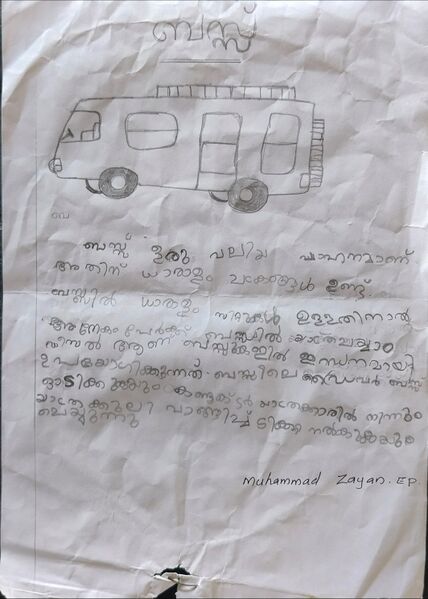 ബസ്സ്
ബ
ബസ്സ് ഒരു വലിയ വാഹനമാണ്
അതിന് ധാരാളം ചക്രങ്ങൾ ഉണ്ട്.
ബസ്സിൽ ധാരാളം സീറ്റുകൾ ഉള്ളതിനാൽ
അനേകം പേർക്ക് ബസ്സിൽ യാത്രചെയ്യാം
ഡീസൽ ആണ് ബസ്സുകളിൽ ഇന്ധനമായി
ഉപയോഗിക്കുന്നത്. ബസിലെ ഡ്രൈവർ ബസ്സ്
ഓടിക്കുകയും കണ്ടക്ടർ യാത്രക്കാരിൽ നിന്നും
യാത്രക്കൂലി വാങ്ങിച്ച് ടിക്കറ്റ് നൽകുകയും
ചെയ്യുന്നു
Muhammad Zayan. EP.